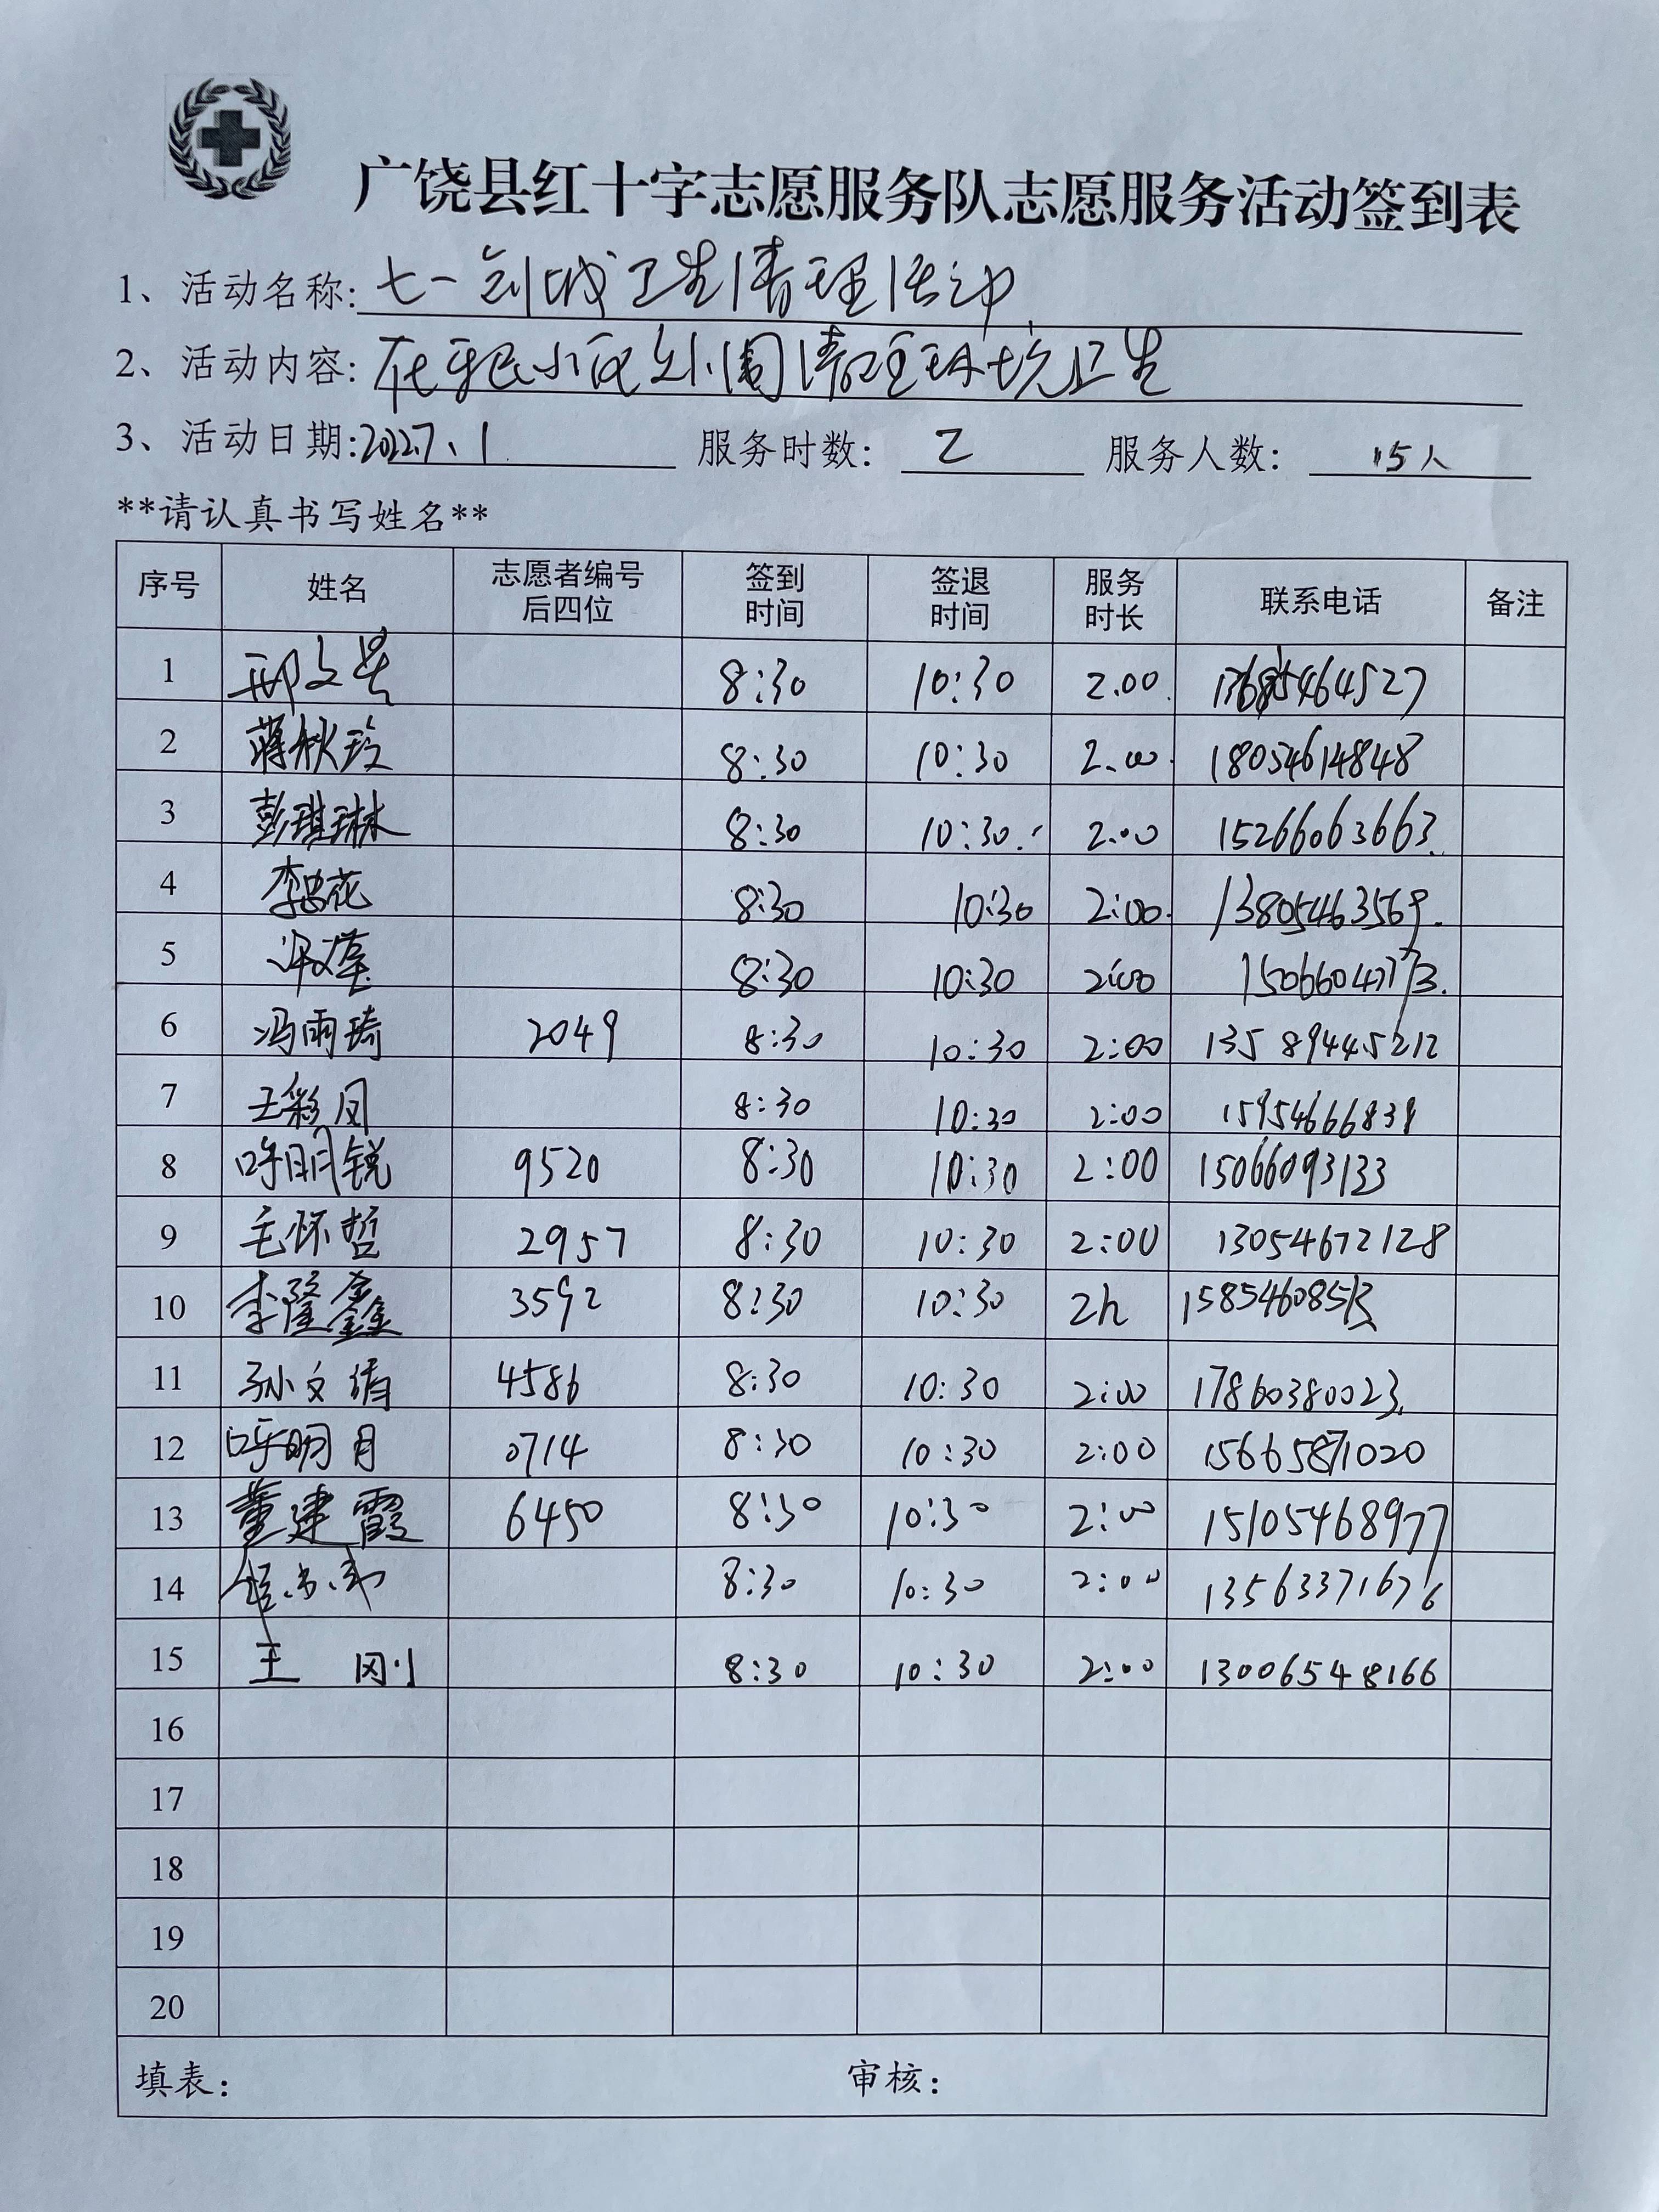 广饶县红十字志愿服务队志愿服务活动签到表
1、活动名称: 七一创城卫生清理活动
2、活动内容: 在 小区外围清理环境卫生
3、活动日期: 2022.7、1 服务时数: 2 服务人数: 15人
**请认真书写姓名**
序号 姓名 志愿者编号后四位 签到时间 签退时间 服务时长 联系电话 备注
1 8:30 10:30 2.00
2 蒋秋玲 8:30 10:30 2.00 18054614848
3 彭琪琳 8:30 10:30 2.00 15266063663
4 8:30 10:30 2:00 13805463569
5 8:30 10:30 2:00
6 冯雨琦 2049 8:30 10:30 2:00 13589445212
7 王彩凤 8:30 10:30 2:00 15954666839
8 呼明锐 9520 8:30 10:30 2:00 15066093133
9 毛怀哲 2957 8:30 10:30 2:00 13054672128
10 李隆鑫 3592 8:30 10:30 2h
11 孙文倩 4586 8:30 10:30 2:00 17860380023
12 呼明月 0714 8:30 10:30 2:00 15665871020
13 董建霞 6450 8:30 10:30 2:00 15105468977
14 8:30 10:30 2:00 13563371676
15 王 刚 8:30 10:30 2:00 13006548166
16
17
18
19
20
填表: 审核: